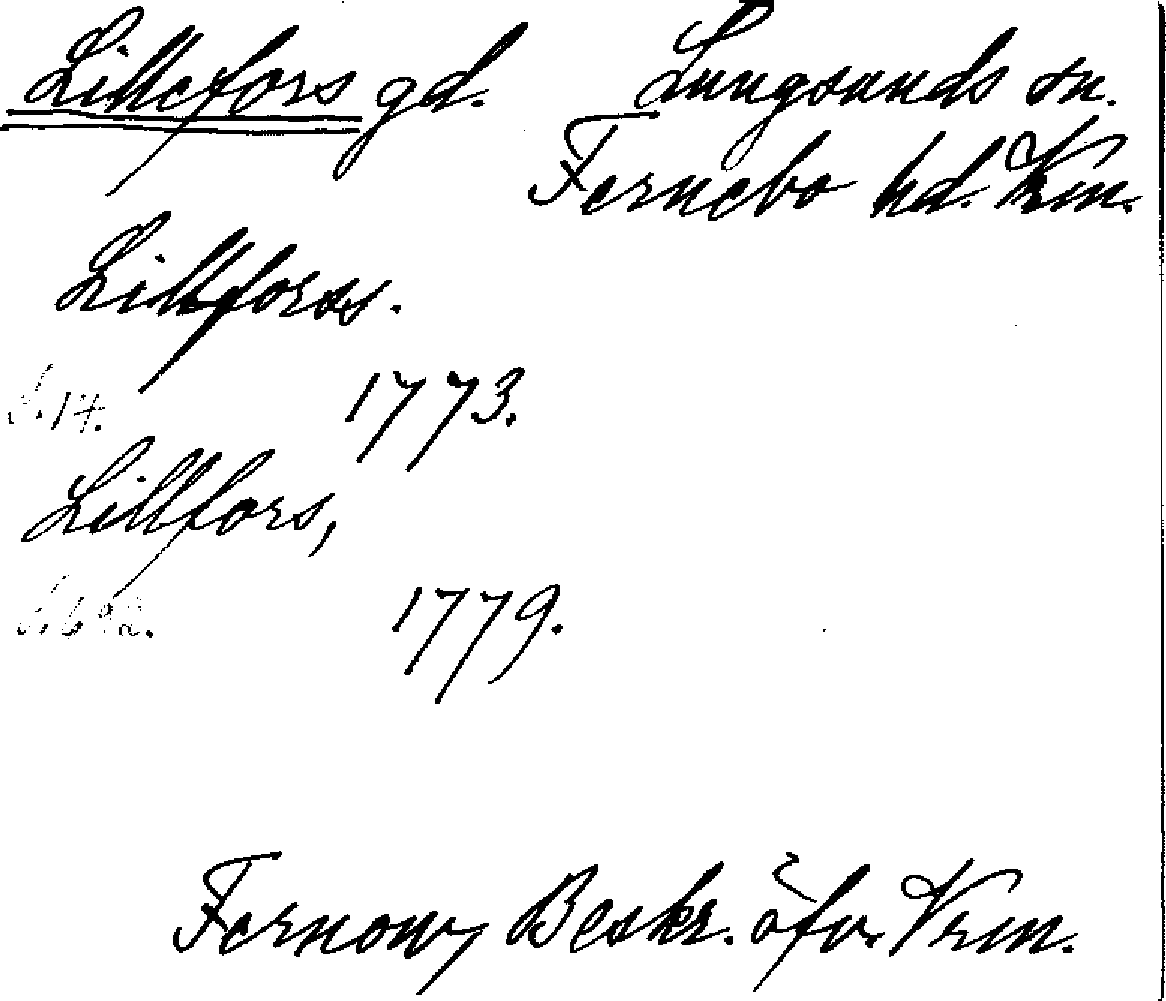 Lillefors gd. Lungsunds sn.
Fernebo hd. Vrm.
Lillforss.
S. 14. 1773.
Lillfors,
S. 692. 1779.
Fernow, Beskr. öfv. Vrm.